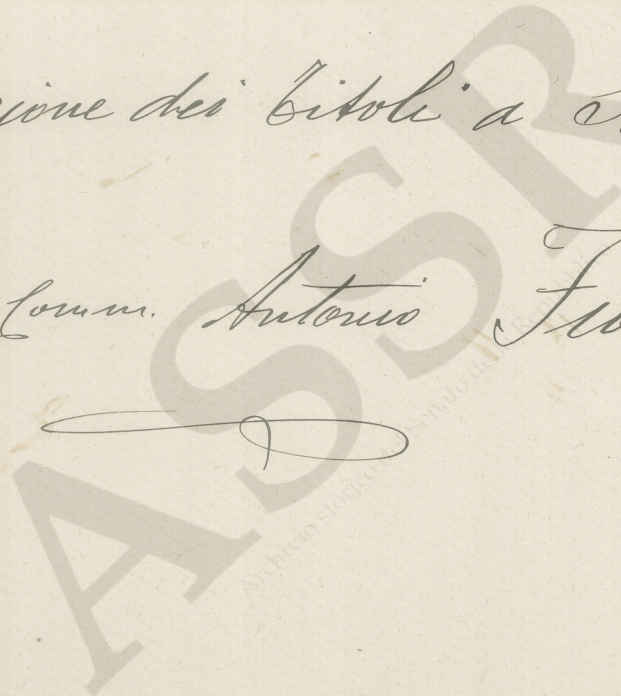 ione dei Titoli a
Comm. Antonio
ASSR
Archivio storico del Senato della Repubblica